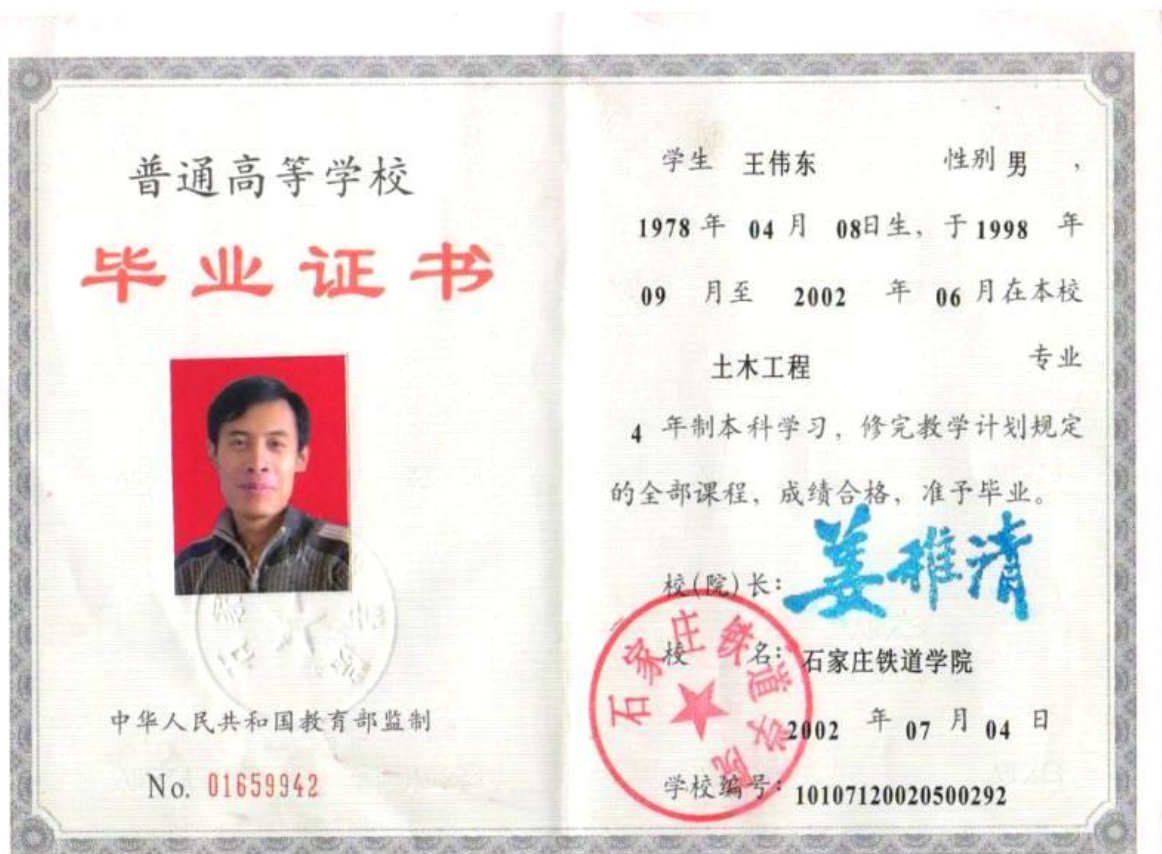 普通高等学校
毕业证书
中华人民共和国教育部监制
No. 01659942
学生 王伟东 性别 男 ,
1978 年 04 月 08日生, 于 1998 年
09 月至 2002 年 06 月在本校
土木工程 专业
4 年制本科学习, 修完教学计划规定
的全部课程, 成绩合格, 准予毕业。
校(院)长: 姜稚清
校 名: 石家庄铁道学院
2002 年 07 月 04 日
学校编号: 10107120020500292
石家庄铁道学院